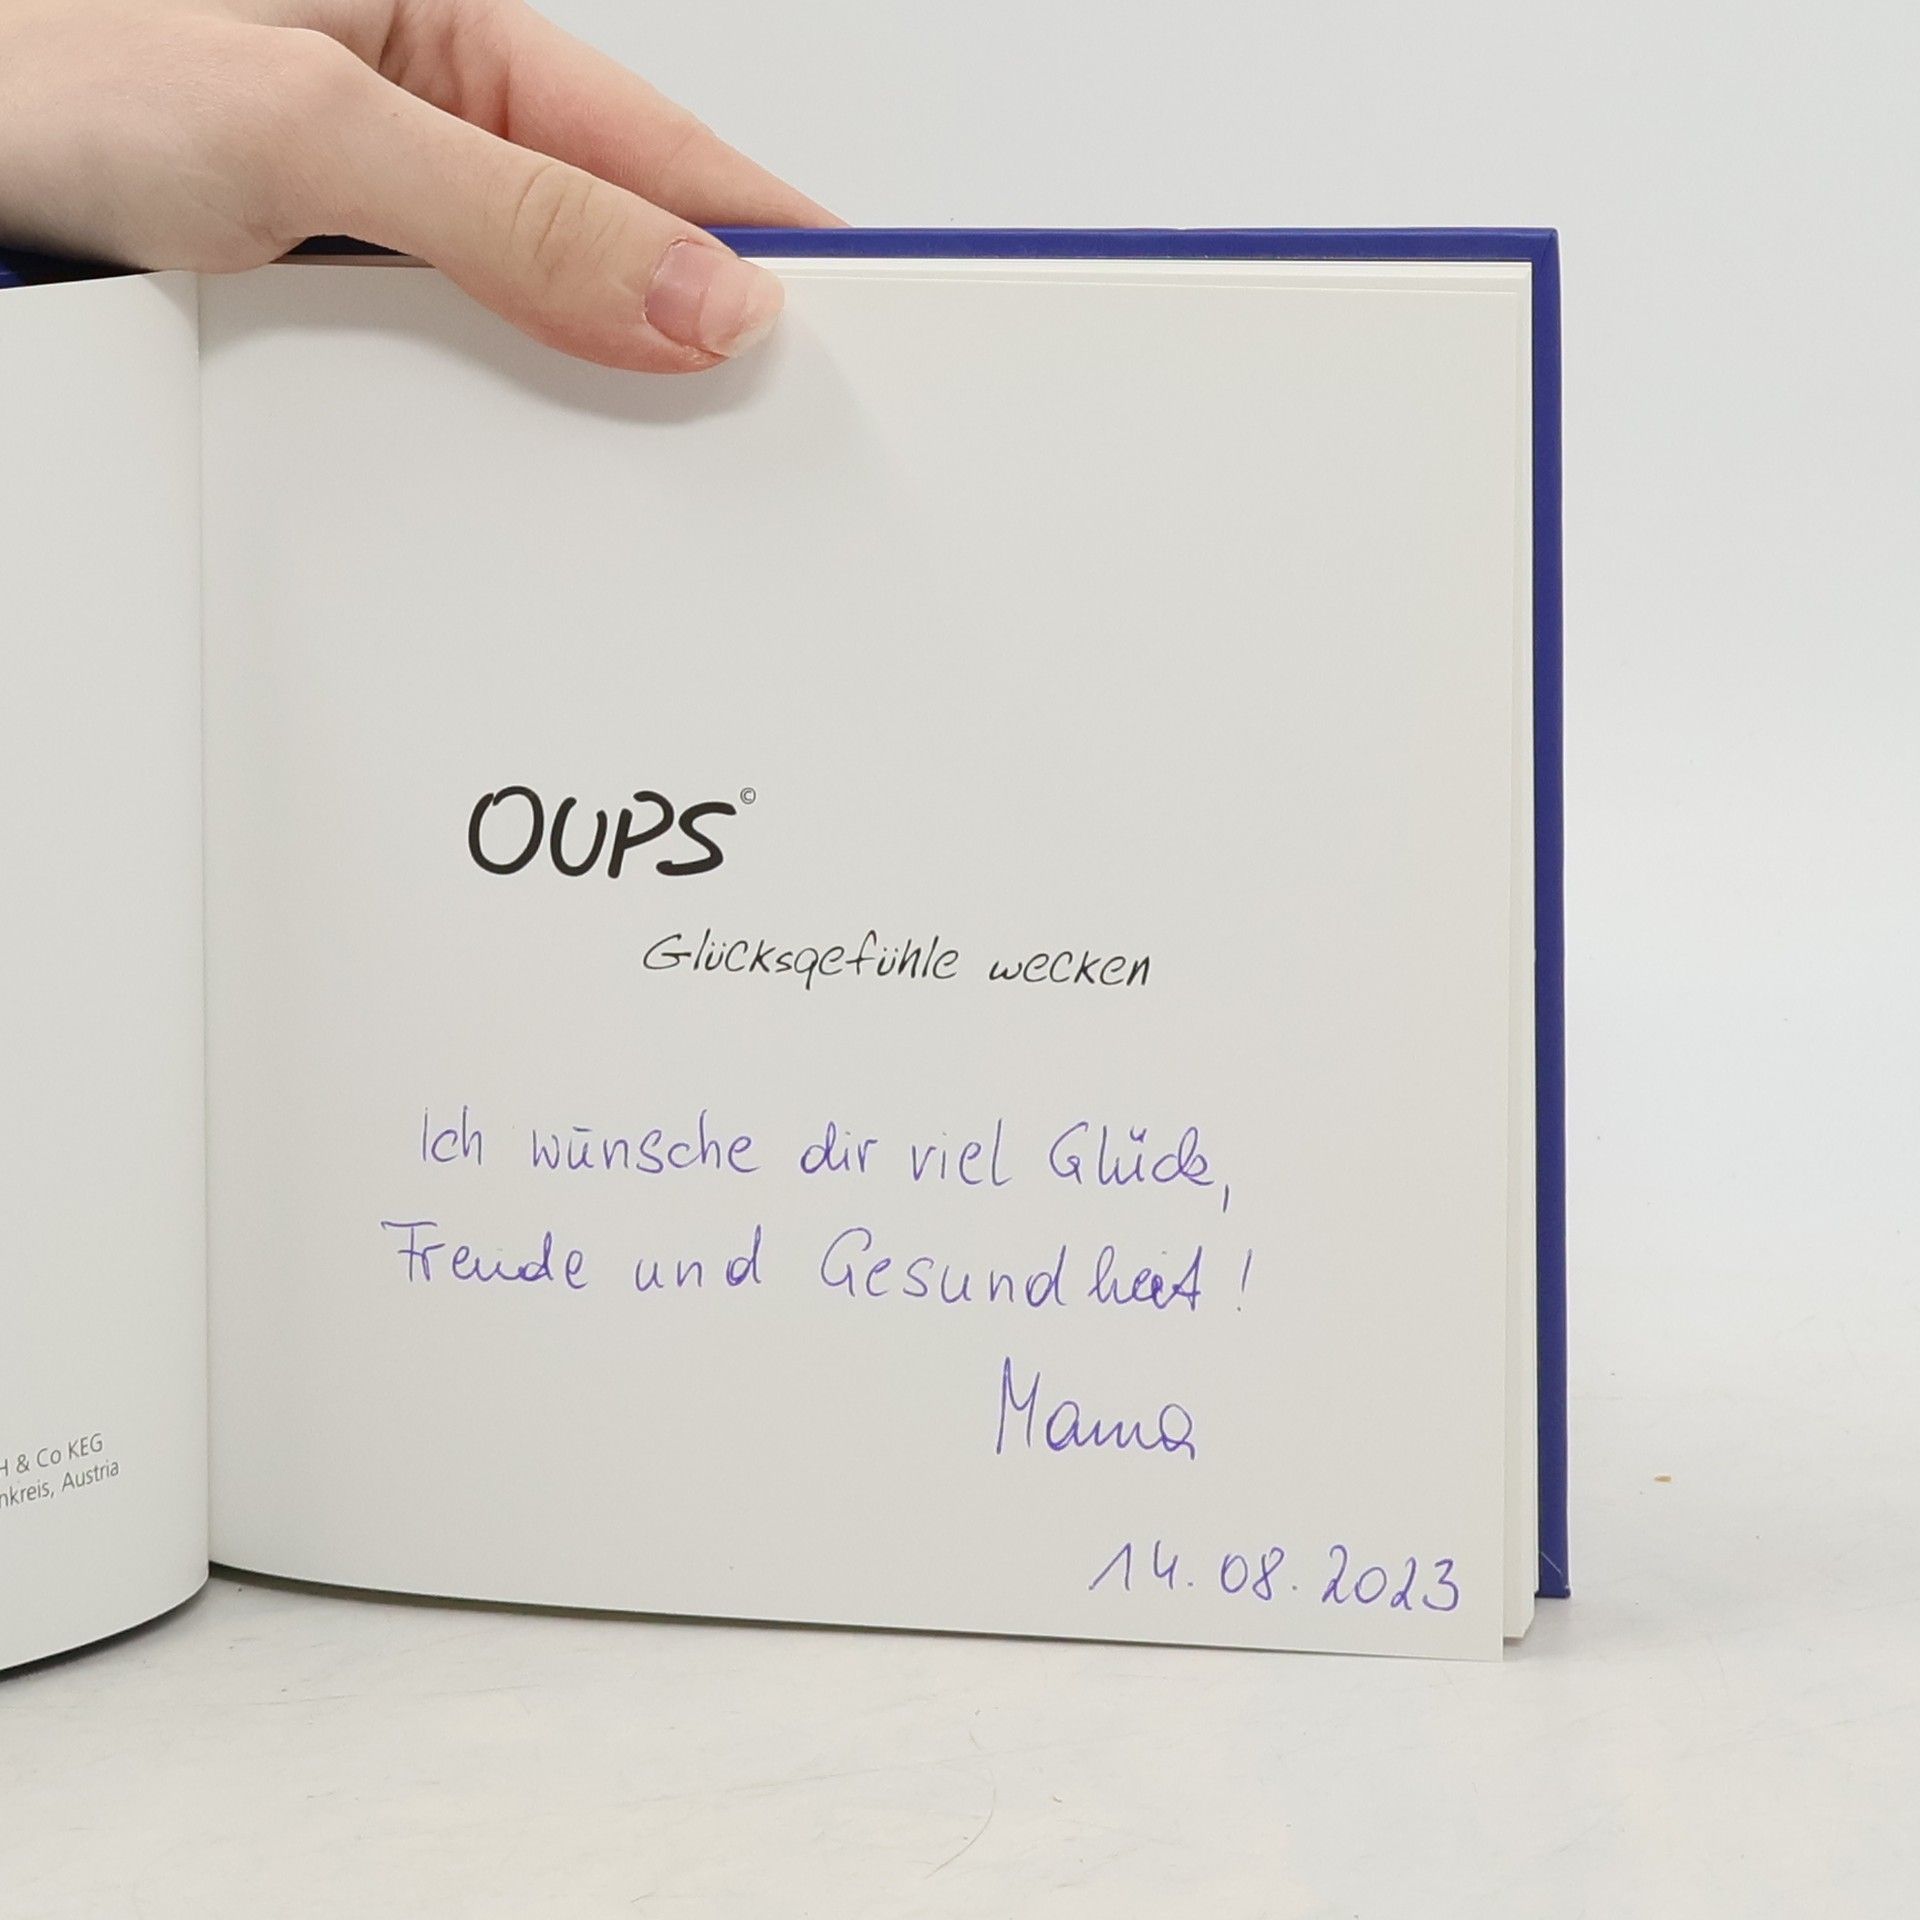 H & Co KEG
nkreis, Austria
OUPS©
Glücksgefühle wecken
Ich wünsche dir viel Glück,
Freude und Gesundheit!
Mama
14.08.2023